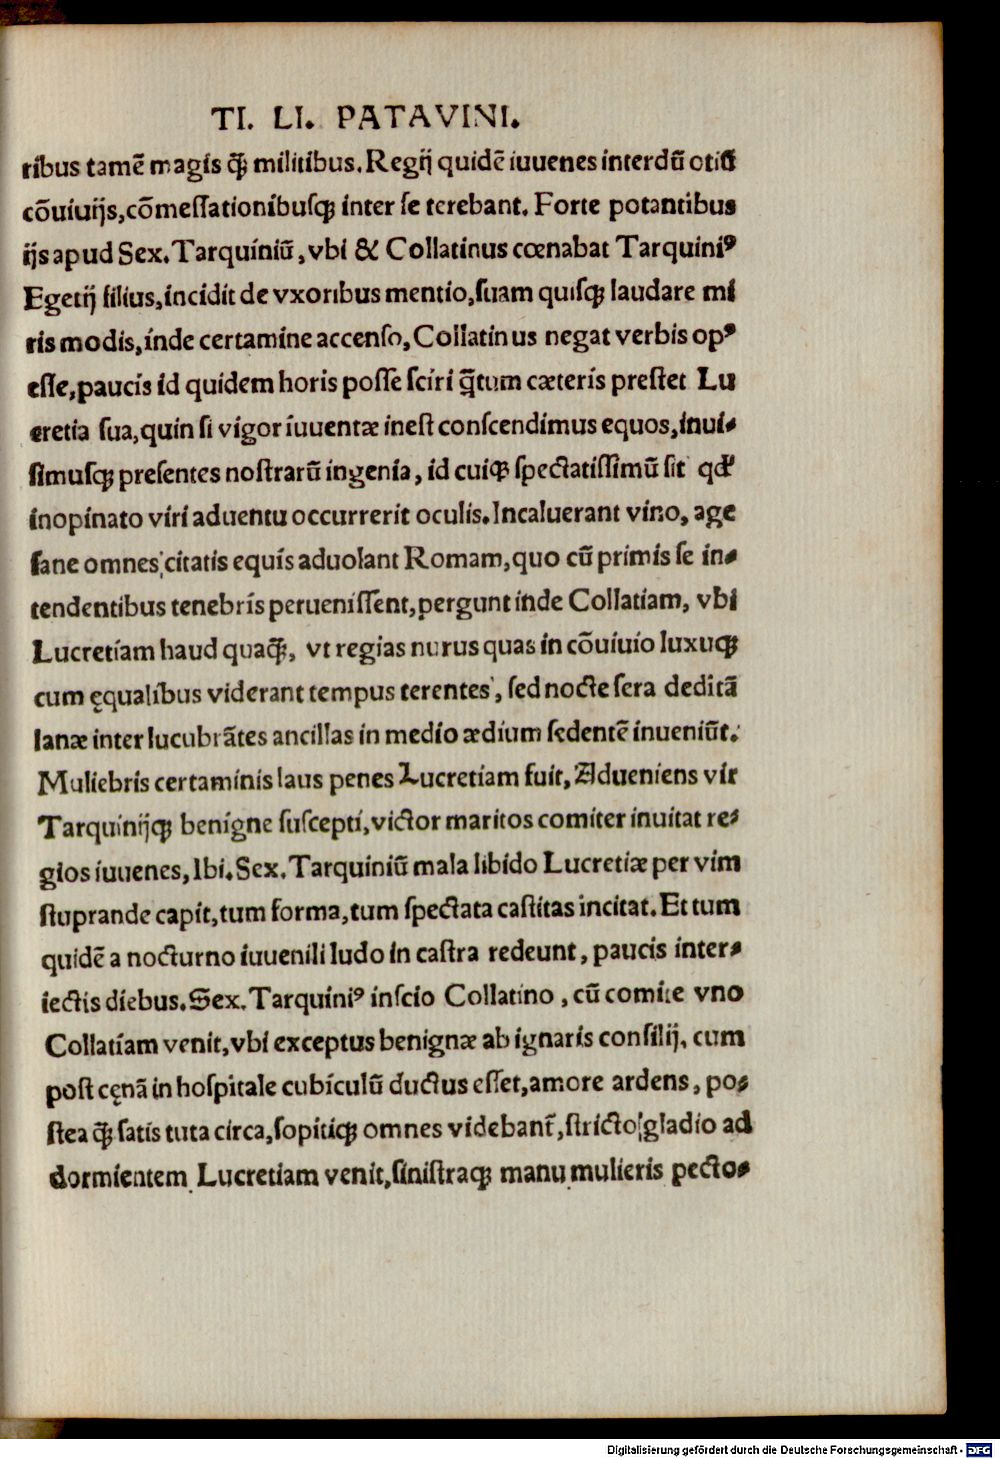 TI. LI. PATAVINI.
ribus tamē magis q̃ꝫ militibus. Regij quidē iuuenes interdū otiū
cōuiuijs, cōmeſſationibuſqꝫ inter ſe terebant. Forte potantibus
ijs apud Sex. Tarquiniū, vbi & Collatinus cœnabat Tarquiniꝰ
Egerij filius, incidit de vxoribus mentio, ſuam quiſqꝫ laudare mi
ris modis, inde certamine accenſo, Collatinus negat verbis opꝰ
eſſe, paucis id quidem horis poſſe ſciri q̃tum cæteris preſtet Lu
cretia ſua, quin ſi vigor iuuentæ ineſt conſcendimus equos, inui⸗
ſimuſqꝫ preſentes noſtrarū ingenia, id cuiqꝫ ſpectatiſſimū ſit qđ
inopinato viri aduentu occurrerit oculis. Incaluerant vino, age
ſane omnes, citatis equis aduolant Romam, quo cū primis ſe in⸗
tendentibus tenebris perueniſſent, pergunt inde Collatiam, vbi
Lucretiam haud quaq̃ꝫ, vt regias nurus quas in cōuiuio luxuqꝫ
cum ęqualibus viderant tempus terentes, ſed nocte ſera deditā
lanæ inter lucubrātes ancillas in medio ædium ſedentē inueniūt.
Muliebris certaminis laus penes Lucretiam fuit, Adueniens vir
Tarquinijqꝫ benigne ſuſcepti, victor maritos comiter inuitat re⸗
gios iuuenes, Ibi. Sex. Tarquiniū mala libido Lucretiæ per vim
ſtuprande capit, tum forma, tum ſpectata caſtitas incitat. Et tum
quidē a nocturno iuuenili ludo in caſtra redeunt, paucis inter⸗
iectis diebus. Sex. Tarquiniꝰ inſcio Collatino, cū comite vno
Collatiam venit, vbi exceptus benignæ ab ignaris conſilij, cum
poſt cęnā in hoſpitale cubiculū ductus eſſet, amore ardens, po⸗
ſtea q̃ꝫ ſatis tuta circa, ſopitiqꝫ omnes videbant̃, ſtricto gladio ad
dormientem Lucretiam venit, ſiniſtraqꝫ manu mulieris pecto⸗
Digitalisierung gefördert durch die Deutsche Forschungsgemeinschaft - DFG